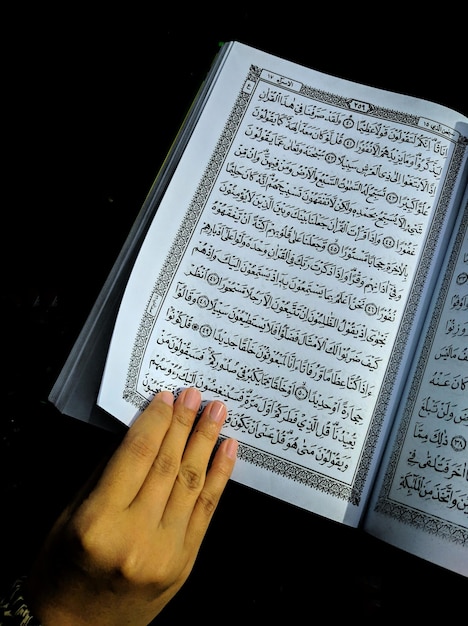 الاسراء ١٧
٢٥٩
إِنَاثًا إِنَّكُمْ لَتَقُولُونَ قَوْلًا عَظِيمًا ۝٤٠ وَلَقَدْ صَرَّفْنَا فِي هٰذَا الْقُرْاٰنِ
لِيَذَّكَّرُوا وَمَا يَزِيدُهُمْ إِلَّا نُفُورًا ۝٤١ قُلْ لَوْ كَانَ مَعَهُ اٰلِهَةٌ كَمَا يَقُولُونَ
إِذًا لَابْتَغَوْا إِلَى ذِي الْعَرْشِ سَبِيلًا ۝٤٢ سُبْحٰنَهُ وَتَعَالَى عَمَّا يَقُولُونَ
عُلُوًّا كَبِيرًا ۝٤٣ تُسَبِّحُ لَهُ السَّمٰوٰتُ السَّبْعُ وَالْأَرْضُ وَمَنْ فِيهِنَّ وَإِنْ مِنْ
شَيْءٍ إِلَّا يُسَبِّحُ بِحَمْدِهِ وَلٰكِنْ لَا تَفْقَهُونَ تَسْبِيحَهُمْ إِنَّهُ كَانَ حَلِيمًا
غَفُورًا ۝٤٤ وَإِذَا قَرَأْتَ الْقُرْاٰنَ جَعَلْنَا بَيْنَكَ وَبَيْنَ الَّذِينَ لَا يُؤْمِنُونَ
بِالْاٰخِرَةِ حِجَابًا مَسْتُورًا ۝٤٥ وَجَعَلْنَا عَلَى قُلُوبِهِمْ أَكِنَّةً أَنْ يَفْقَهُوهُ
وَفِي اٰذَانِهِمْ وَقْرًا وَإِذَا ذَكَرْتَ رَبَّكَ فِي الْقُرْاٰنِ وَحْدَهُ وَلَّوْا عَلَى أَدْبَارِهِمْ
نُفُورًا ۝٤٦ نَحْنُ أَعْلَمُ بِمَا يَسْتَمِعُونَ بِهِ إِذْ يَسْتَمِعُونَ إِلَيْكَ وَإِذْ هُمْ
نَجْوَى إِذْ يَقُولُ الظّٰلِمُونَ إِنْ تَتَّبِعُونَ إِلَّا رَجُلًا مَسْحُورًا ۝٤٧ اُنْظُرْ
كَيْفَ ضَرَبُوا لَكَ الْأَمْثَالَ فَضَلُّوا فَلَا يَسْتَطِيعُونَ سَبِيلًا ۝٤٨ وَقَالُوا
ءَإِذَا كُنَّا عِظَامًا وَرُفَاتًا ءَإِنَّا لَمَبْعُوثُونَ خَلْقًا جَدِيدًا ۝٤٩ قُلْ كُونُوا
حِجَارَةً أَوْ حَدِيدًا ۝٥٠ أَوْ خَلْقًا مِمَّا يَكْبُرُ فِي صُدُورِكُمْ فَسَيَقُولُونَ مَنْ
يُعِيدُنَا قُلِ الَّذِي فَطَرَكُمْ أَوَّلَ مَرَّةٍ فَسَيُنْغِضُونَ إِلَيْكَ رُءُوسَهُمْ
وَيَقُولُونَ مَتَى هُوَ قُلْ عَسَى أَنْ يَكُونَ قَرِيبًا
عَنْهُ
وَلَنْ تَبْلُغَ
ذٰلِكَ مِمَّا
فَتُلْقَى فِي
وَاتَّخَذَ مِنَ الْمَلٰئِكَةِ